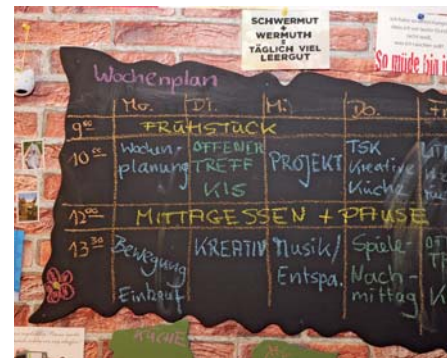 SCHWERMUT
+
WERMUTH
=
TÄGLICH VIEL
LEERGUT
So müde bin i
Wochenplan
Mo. Di. Mi. Do.
9⁰⁰ FRÜHSTÜCK
10⁰⁰ Wochen-planung OFFENER TREFF KIS PROJEKT TSK Kreative Küche
12⁰⁰ MITTAGESSEN + PAUSE
13³⁰ Bewegung Einkauf KREATIV Musik/Entspa. Spiele-Nach-mittag
KÜCHE